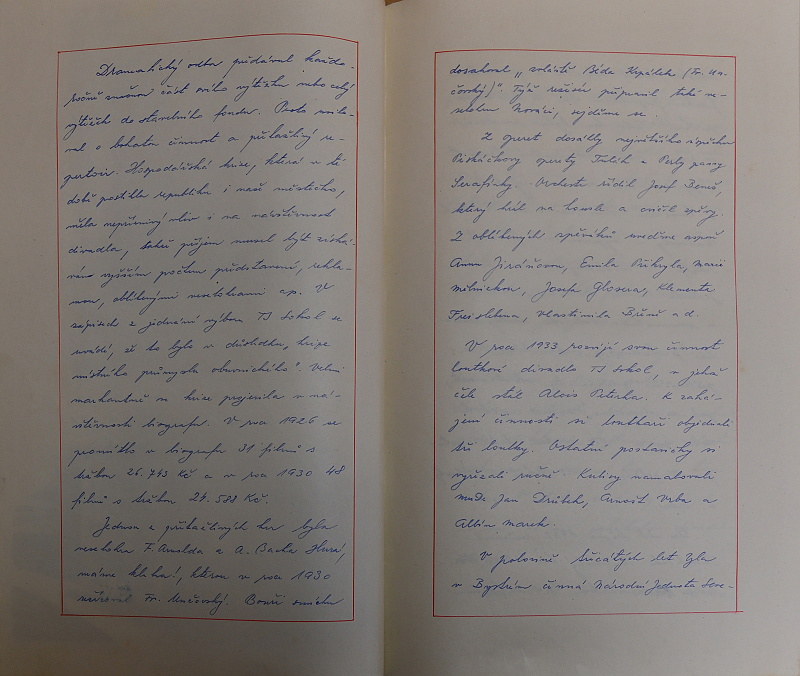 Dramatický odbor přidával každo-
ročně značnou část svého výtěžku nebo celý
výtěžek do stavebního fondu. Proto usilo-
val o bohatou činnost a přitažlivý re-
pertoir. Hospodářská krise, která v té
době postihla republiku i naše městečko,
měla nepříznivý vliv i na návštěvnost
divadla, takže příjem musel být získá-
ván vyšším počtem představení, rekla-
mou, oblíbenými veselohrami ap. V
zápisech z jednání výboru TJ Sokol se
uvádí, že to bylo v důsledku „krize
místního průmyslu obuvnického". Velmi
markantně se krize projevila v ná-
vštěvnosti biografu. V roce 1926 se
promítlo v biografu 31 filmů s
tržbou 26.743 Kč a v roce 1930 48
filmů s tržbou 24.588 Kč.
Jednou z přitažlivých her byla
veselohra F. Arnolda a A. Bacha Hurá,
máme kluka!, kterou v roce 1930
režíroval Fr. Unčovský. Bouři smíchu
dosahoval „solista Béďa Krpálek (Fr. Un-
čovský)". Týž režisér připravil také ve-
selohru Nováci, sejdeme se.
Z operet dosáhly největšího úspěchu
Piskáčkovy operety Tulák a Perly panny
Serafinky. Orchestr řídil Josef Beneš,
který hrál na housle a cvičil zpěvy.
Z oblíbených zpěváků uveďme aspoň
Annu Jiráňovou, Emila Přikryla, Marii
Mělnickou, Josefa Glosera, Klementa
Freislebena, Vlastimila Bříně a d.
V roce 1933 rozvíjí svou činnost
loutkové divadlo TJ Sokol, v jehož
čele stál Alois Peterka. K zahá-
jení činnosti si loutkáři objednali
tři loutky. Ostatní postavičky si
vyřezali ručně. Kulisy namalovali
muže Jan Drábek, Arnošt Vrba a
Albín Marek.
V polovině třicátých let byla
v Bystrém činná Národní Jednota Seve-